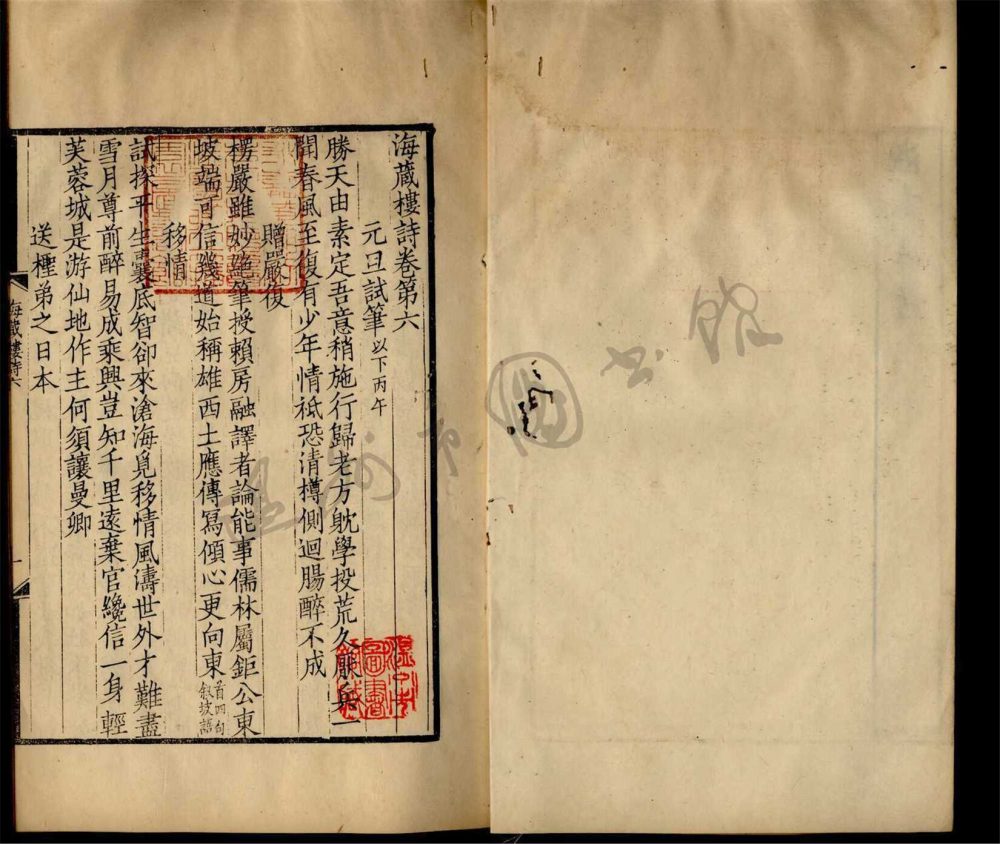 海藏樓詩卷第六
元旦試筆 以下丙午
勝天由素定吾意稍施行歸老方躭學投荒久厭兵一
聞春風至復有少年情祗恐清樽側迴腸醉不成
贈嚴復
楞嚴雖妙絕筆授賴房融譯者論能事儒林屬鉅公東
坡端可信幾道始稱雄西土應傳寫傾心更向東 首四句敘坡語
移情
試探平生囊底智卻來滄海覓移情風濤世外才難盡
雪月尊前醉易成乘興豈知千里遠棄官纔信一身輕
芙蓉城是游仙地作主何須讓曼卿
送檉弟之日本
海藏樓詩六
一
溫州市圖書館